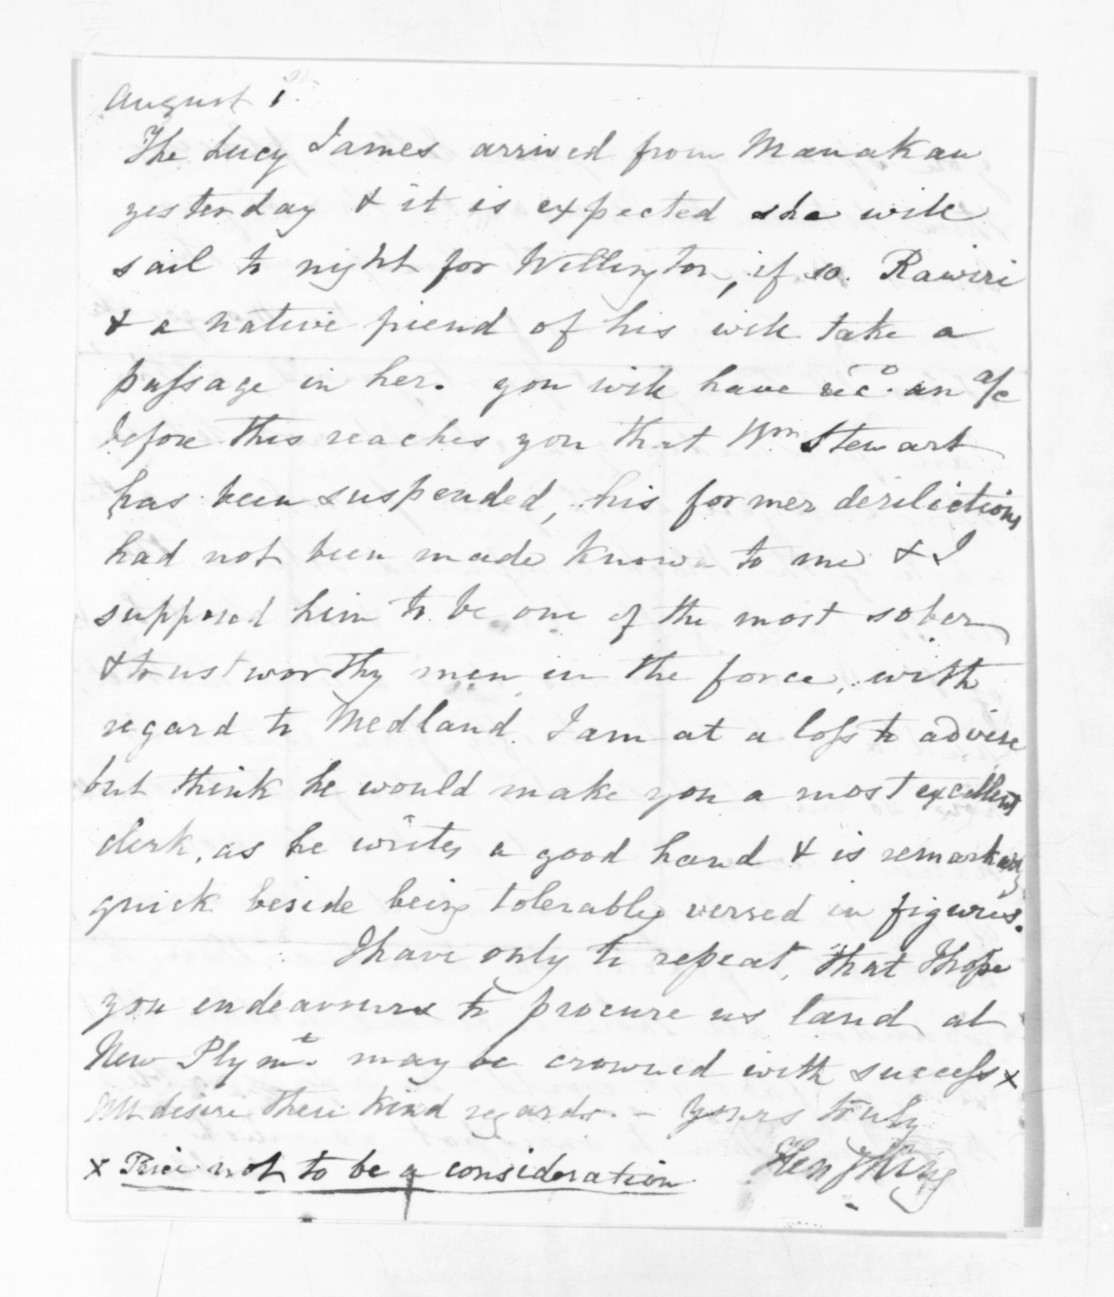 August 1st
The Lucy James arrived from Manakau
yesterday & it is expected she will
sail to night for Wellington, if so. Rawiri
& a native friend of his will take a
passage in her. you will have recd. an a/c
before this reaches you that Wm Stewart
has been suspended, his former derilictions
had not been made known to me & I
supposed him to be one of the most sober
& trustworthy men in the force, with
regard to Medland. I am at a loss to advise
but think he would make you a most excellent
clerk, as he writes a good hand & is remarkably
quick beside being tolerably versed in figures.
I have only to repeat, that I hope
you endeavours to procure us land at
New Plymt. may be crowned with success x
All desire their kind regards. - Yours truly
Heny King
x Price not to be a consideration